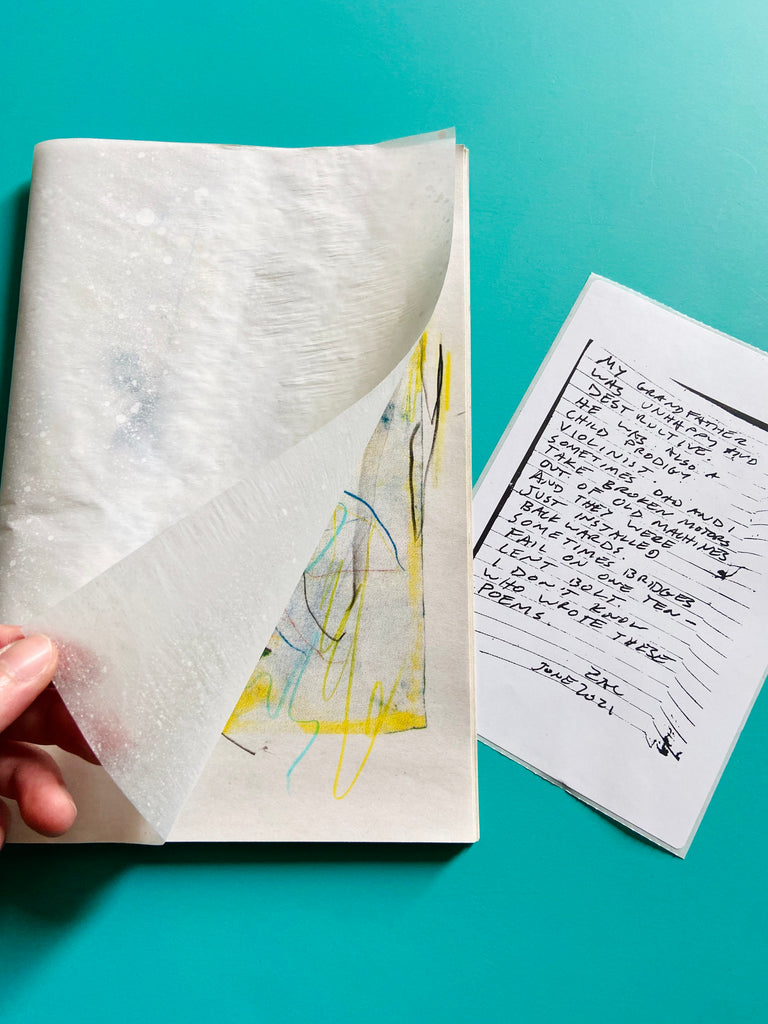 MY GRANDFATHER
WAS UNHAPPY AND
DESTRUCTIVE.
HE WAS ALSO A
CHILD PRODIGY
VIOLINIST.
SOMETIMES DAD AND I
TAKE BROKEN MOTORS
OUT OF OLD MACHINES
AND THEY WERE
JUST INSTALLED
BACKWARDS.
SOMETIMES BRIDGES
FAIL ON ONE TEN-
CENT BOLT.
I DON'T KNOW
WHO WROTE THESE
POEMS.
ZAC
JUNE 2021